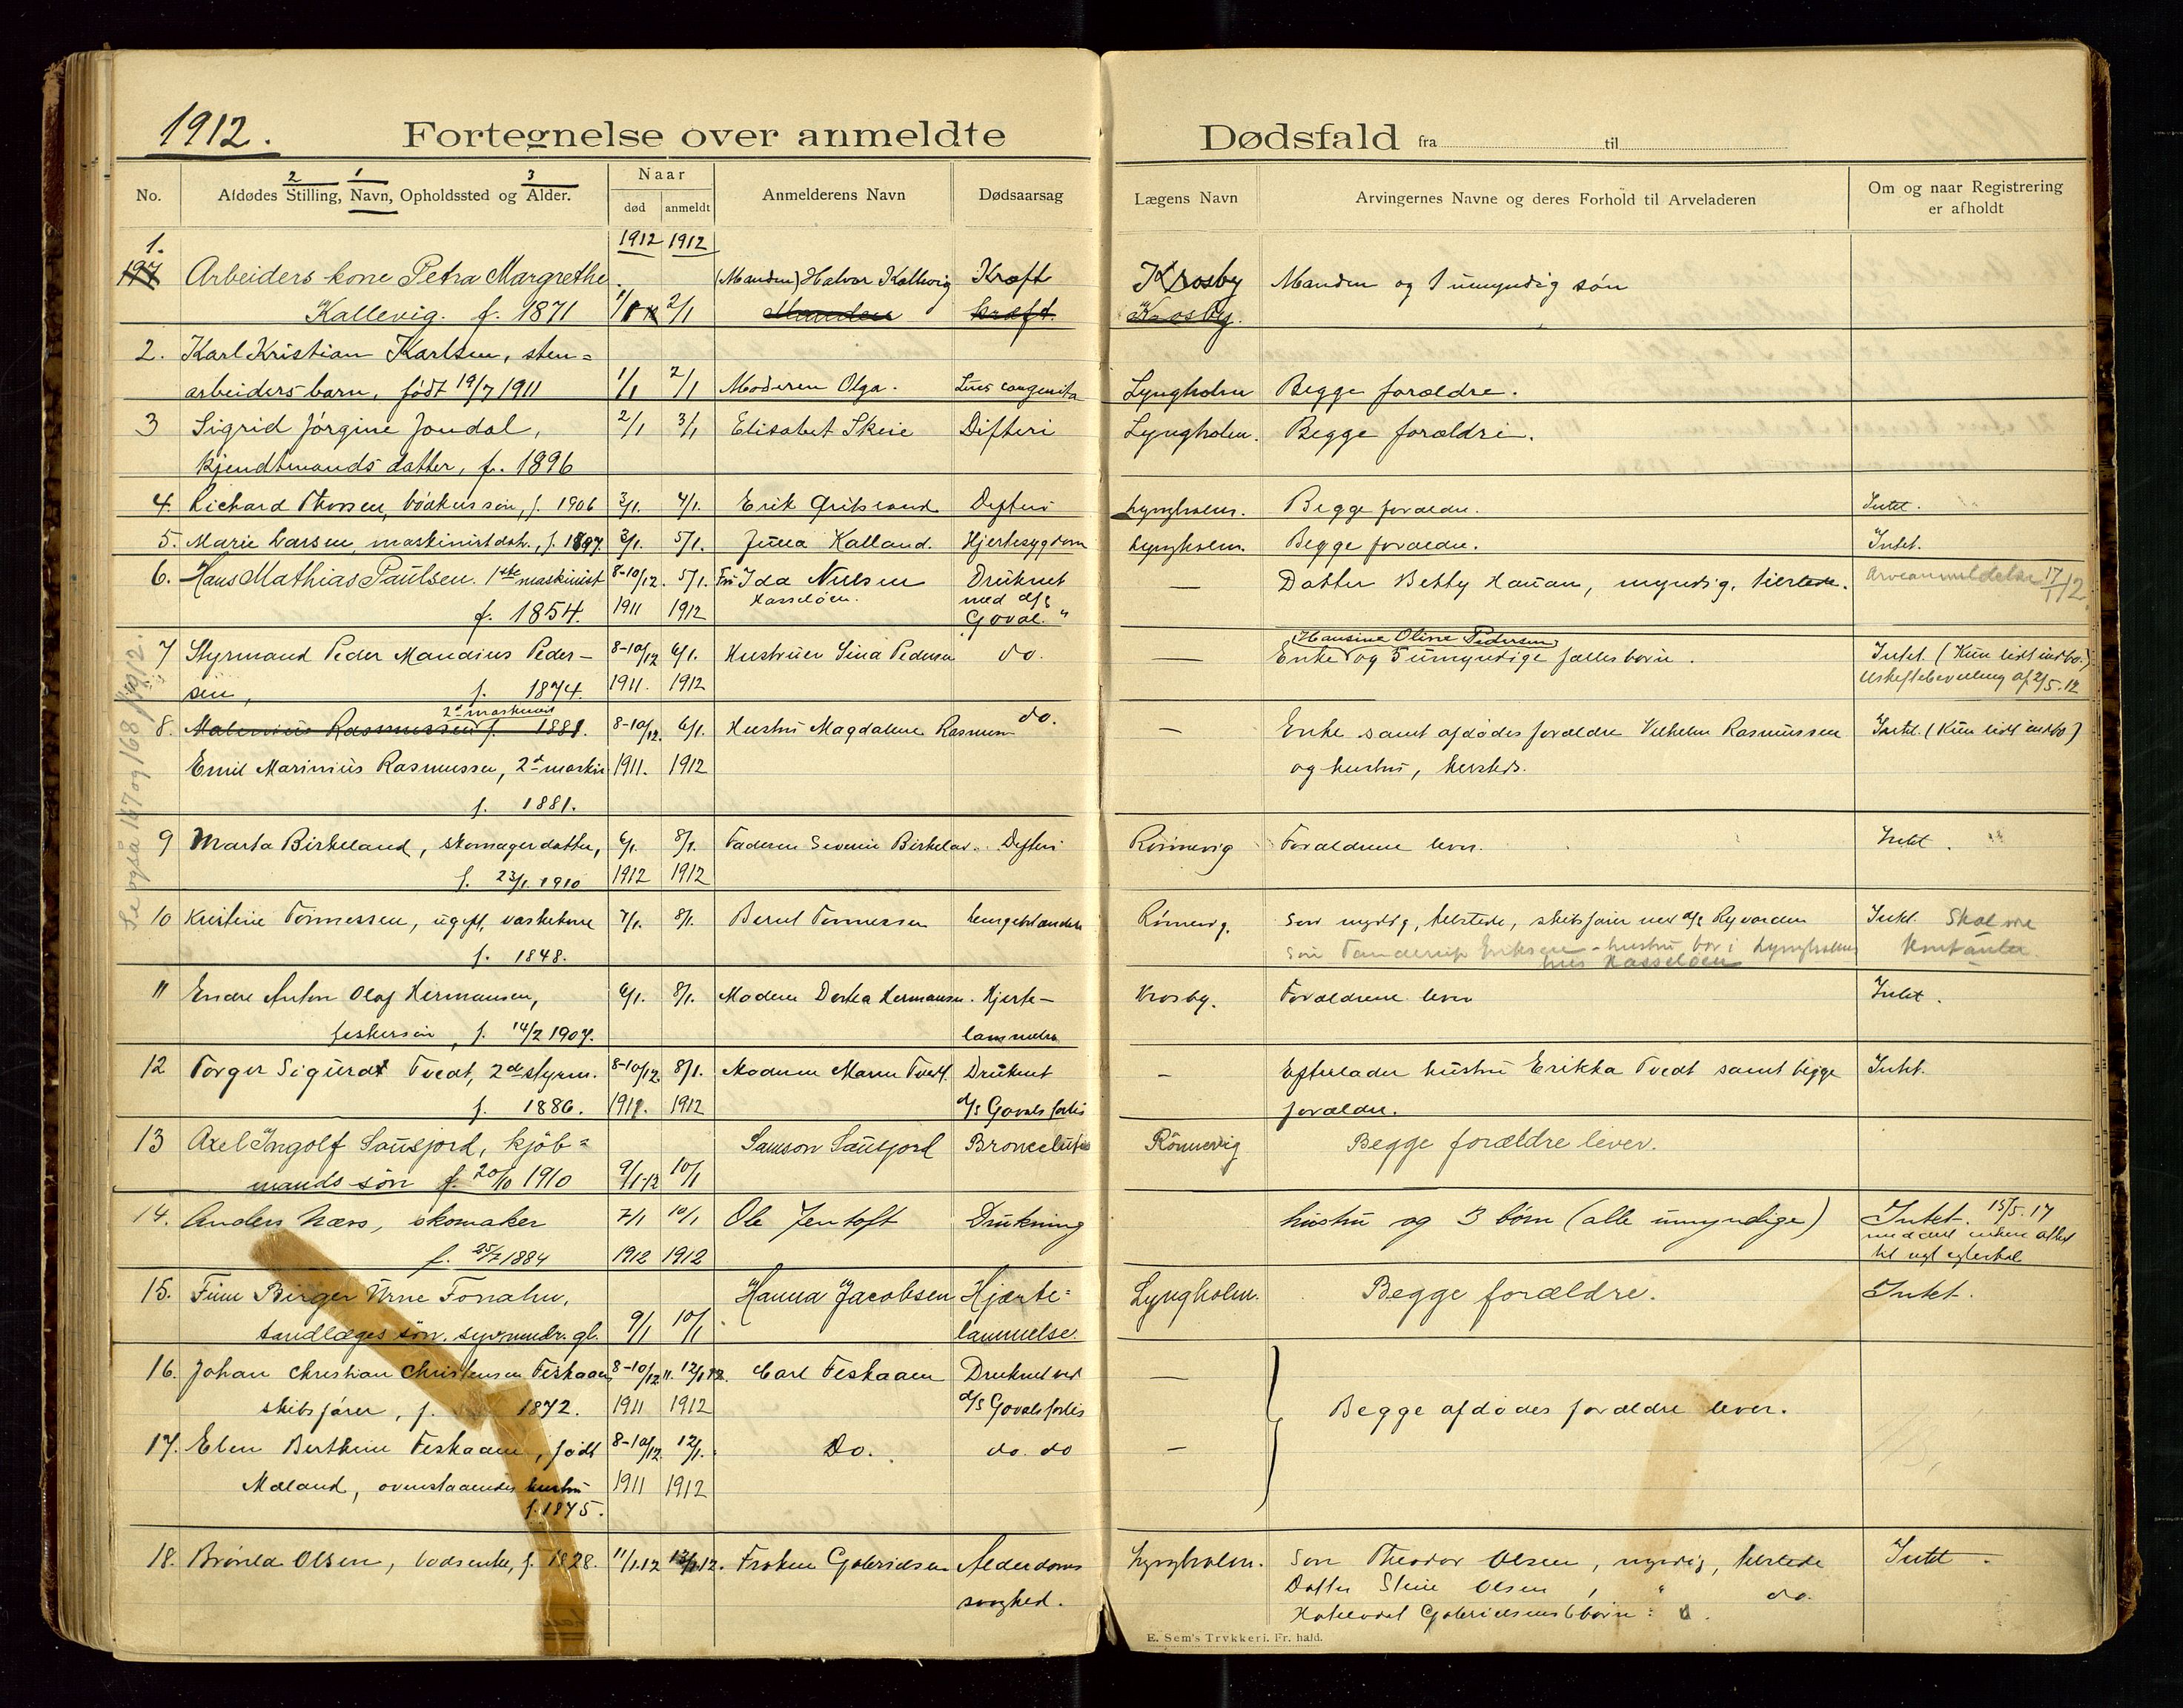 1912.
Fortegnelse over anmeldte Dødsfald fra til
No.
2 1 3
Afdødes Stilling, Navn, Opholdssted og Alder.
Naar
død anmeldt
Anmelderens Navn
Dødsaarsag
Lægens Navn
Arvingernes Navne og deres Forhold til Arveladeren
Om og naar Registrering
er afholdt
1912 1912
1.
197 Arbeiders kone Petra Margrethe (Manden) Halvor Kallevig Kræft Krosby Manden og 1 umyndig søn
Kallevig. f. 1871 1/1 2/1 Manden kræft. Krosby.
2. Karl Kristian Karlsen, sten=
arbeiders barn, født 19/7 1911 1/1 2/1 Moderen Olga. Lues congenita Lyngholm Begge forældre.
3 Sigrid Jørgine Jondal, 2/1 3/1 Elisabet Skeie Difteri Lyngholm. Begge forældre.
kjendtmands datter, f. 1896
4. Richard Thorsen, bødkersøn, f. 1906 3/1. 4/1. Erik Gritsrand Difteri Lyngholm. Begge forældre. Intet.
5. Marie Larsen, maskinistdatr., f. 1897. 3/1. 5/1. Julia Kalland. Hjertesygdom Lyngholm. Begge forældre. Intet.
6. Hans Mathias Paulsen. 1ste maskinist 8-10/12. 5/1. Fru Ida Nielsen Druknet — Datter Betty Hauan, myndig, hersteds. Arveanmeldelse 17/1 12.
f. 1854. 1911 1912 Hasseløen. med d/s
Goval."
Hansine Oline Pedersen
7 Styrmand Peder Mandius Peder- 8-10/12 6/1. Hustruen Sina Pedersen do. — Enke og 5 umyndige fællesbørn. Intet. (Kun lidt indbo.)
sen, f. 1874. 1911. 1912 Uskiftebevilling af 2/5.12
2den maskinist
8. Malenius Rasmussen f. 1881. 8-10/12. 6/1. Hustru Magdalene Rasmussen do. — Enke samt afdødes forældre Vilhelm Rasmussen Intet. (Kun lidt indbo)
Emil Marinius Rasmussen, 2den maskin 1911. 1912 og hustru, hersteds.
f. 1881.
Se også 167 og 168 1912.
9 Marta Birkeland, skomagerdatter, 6/1. 8/1. Faderen Severin Birkeland Difteri Rønnevig Forældrene lever. Intet.
f. 23/1. 1910 1912 1912
10 Kristine Tønnessen, ugift, vaskekone 7/1. 8/1. Bernt Tønnessen Lungebetændelse Rønnevig. Søn myndig, hersteds, skibsfører med d/s Ryvarden Intet. Skal være
f. 1848. søn Tanderup Eriksen - hustru bor i Lyngholms
hus Hasseløen
11 Endre Anton Olaf Hermansen, 6/1. 8/1. Moderen Dortea Hermansen. Hjerte- Krosby. Forældrene lever Intet.
fiskersøn, f. 14/2 1907. lammelse
12 Torger Sigurd Tvedt, 2den styrm. 8-10/12. 8/1. Moderen Maren Tvedt. Druknet - Efterlader hustru Erikka Tvedt samt begge Intet.
f. 1886. 1911. 1912 d/s Govals forlis forældre.
13 Axel Ingolf Sausjord, kjøb= Samson Sausjord Rønnevig Begge forældre lever.
mands søn f. 20/10 1910 9/1-12 10/1
14. Anders Næss, skomaker 7/1 10/1 Ole Jentoft Drukning hustru og 3 børn (alle umyndige) Intet. 15/5.17
f. 25/7 1884 1912 1912 meddelt enken attest
til nyt egteskab
15. Finn Birger Urne Fonahn, Hanna Jacobsen Hjærte= Lyngholm. Begge forældre. Intet.
tandlæges søn, syv mndr. gl. 9/1 10/1 lammelse.
16. Johan Christian Christensen Feskaaen, 8-10/12 11. 12/1 12. Carl Feskaaen Druknet ved —
skibsfører, f. 1872. 1911 1912 d/s Govals forlis Begge afdødes forældre lever.
17. Elen Berthine Feskaaen, født 8-10/12. 12/1. Do. do. do —
Mæland, ovenstaaendes hustru 1911 1912
f. 1875.
18. Brønla Olsen, lodsenke, f. 1828. 11/1.12 13/1.12. Frøken Gabrielsen Alderdoms Lyngholm. Søn Theodor Olsen, myndig, hersteds Intet.
svaghed. Datter Stine Olsen, " do.
Gabrielsens 6 børn
E. Sem's Trykkeri. Fr. hald.